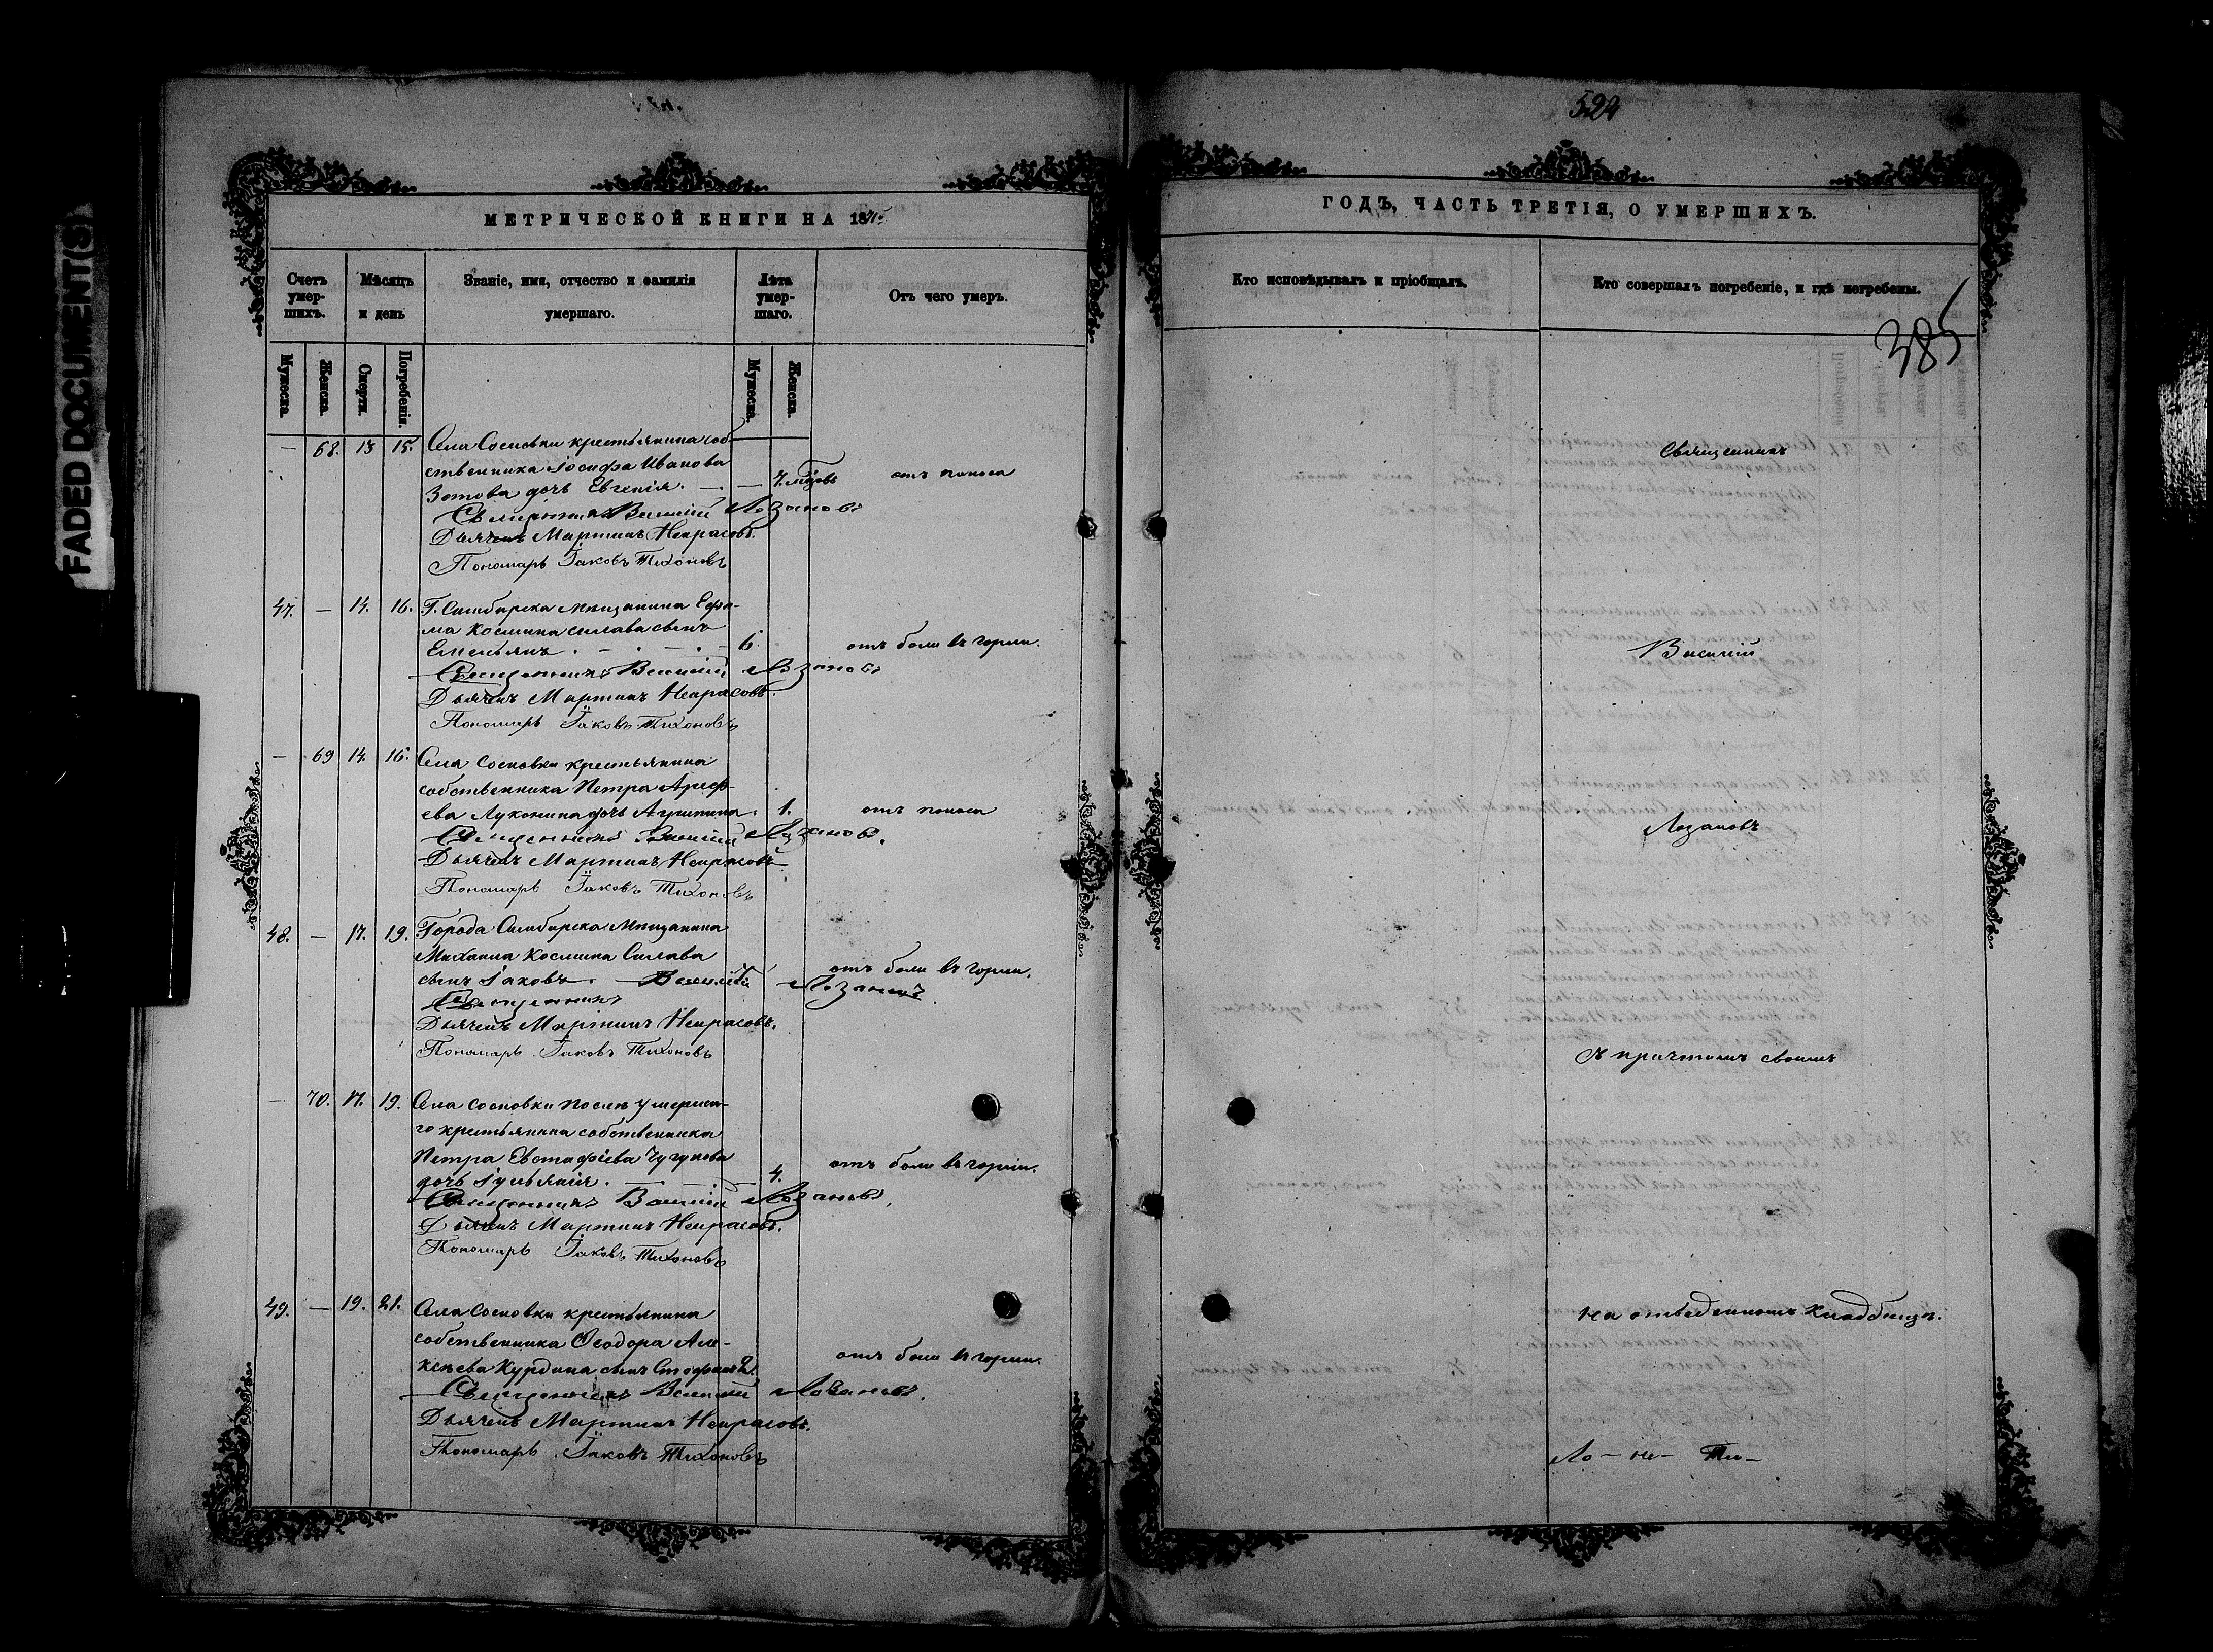 FADED DOCUMENT(S)
МЕТРИЧЕСКОЙ КНИГИ НА 187
Счетъ умер- шихъ.
Мѣсяцъ и день
Званіе, имя, отчество и фамилія умершаго.
Лѣта умер- шаго.
Отъ чего умеръ.
Мужеска.
Женска.
Смерти.
Погребенія.
Мужеска.
Женска.
— 68. 13 15. Села Сосновки крестьянина соб-
ственника Іосифа Иванова
Зотова дочь Евгенія. — 7. отъ поноса
Священникъ Василій Лозановъ
Дьячекъ Мартинъ Некрасовъ.
Пономарь Іаковъ Тихоновъ
47. — 14. 16. Г. Симбирска мѣщанина Ефи-
ма Космина сынъ
Емельянъ. — 6. отъ боли въ горлѣ.
Священникъ Василій Лозановъ
Дьячекъ Мартинъ Некрасовъ.
Пономарь Іаковъ Тихоновъ
— 69 14. 16. Села Сосновки крестьянина
собственника Петра Ареф-
ева Луконина дочь Агрипина. 1. отъ поноса
Священникъ Василій Лозановъ.
Дьячекъ Мартинъ Некрасовъ
Пономарь Іаковъ Тихоновъ
48. — 17. 19. Города Симбирска мѣщанина
Михаила Космина
сынъ Іаковъ. отъ боли въ горлѣ.
Священникъ Василій Лозановъ
Дьячекъ Мартинъ Некрасовъ.
Пономарь Іаковъ Тихоновъ
— 70. 17. 19. Села Сосновки послѣ умерша-
го крестьянина собственника
Петра Евстафіева Чугунова
дочь Іуліянія. — 4. отъ боли въ горлѣ.
Священникъ Василій Лозановъ.
Дьячекъ Мартинъ Некрасовъ.
Пономарь Іаковъ Тихоновъ
49. — 19. 21. Села Сосновки крестьянина
собственника Ѳеодора Але-
ксѣева Курдина сынъ Стефанъ 2. отъ боли въ горлѣ.
Священникъ Василій Лозановъ.
Дьячекъ Мартинъ Некрасовъ.
Пономарь Іаковъ Тихоновъ
524
ГОДЪ, ЧАСТЬ ТРЕТІЯ, О УМЕРШИХЪ.
Кто исповѣдывалъ и пріобщалъ.
Кто совершалъ погребеніе, и гдѣ погребены.
385
Священникъ
Василій
Лозановъ
съ причтомъ своимъ
На отведенномъ кладбищѣ.
Ло— не— Ти—